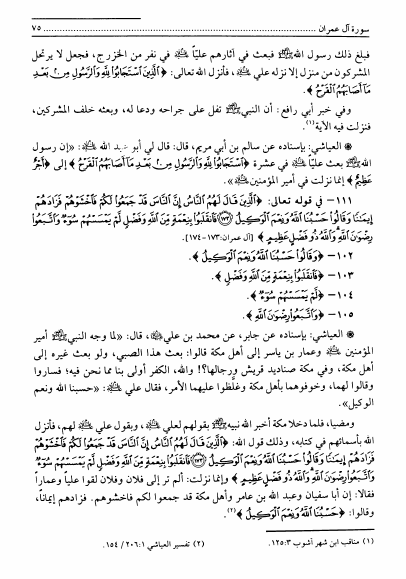 سورة آل عمران ........ ٧٥
فبلغ ذلك رسول الله ﷺ فبعث في آثارهم علياً ﷺ في نفر من الخزرج، فجعل لا يرتحل
المشركون من منزل إلا نزله علي ﷺ، فأنزل الله تعالى: ﴿الَّذِينَ اسْتَجَابُوا لِلَّهِ وَالرَّسُولِ مِنْ بَعْدِ
مَا أَصَابَهُمُ الْقَرْحُ﴾.
وفي خبر أبي رافع: أن النبي ﷺ تفل على جراحه ودعا له، وبعثه خلف المشركين،
فنزلت فيه الآية(١).
* العياشي: بإسناده عن سالم بن أبي مريم، قال: قال لي أبو عبد الله ﷺ: «إن رسول
الله ﷺ بعث علياً ﷺ في عشرة ﴿اسْتَجَابُوا لِلَّهِ وَالرَّسُولِ مِنْ بَعْدِ مَا أَصَابَهُمُ الْقَرْحُ﴾ إلى ﴿أَجْرٌ
عَظِيمٌ﴾ إنما نزلت في أمير المؤمنين ﷺ».
١١١- في قوله تعالى: ﴿الَّذِينَ قَالَ لَهُمُ النَّاسُ إِنَّ النَّاسَ قَدْ جَمَعُوا لَكُمْ فَاخْشَوْهُمْ فَزَادَهُمْ
إِيمَانًا وَقَالُوا حَسْبُنَا اللَّهُ وَنِعْمَ الْوَكِيلُ ﴿١٧٣﴾ فَانْقَلَبُوا بِنِعْمَةٍ مِنَ اللَّهِ وَفَضْلٍ لَمْ يَمْسَسْهُمْ سُوءٌ وَاتَّبَعُوا
رِضْوَانَ اللَّهِ وَاللَّهُ ذُو فَضْلٍ عَظِيمٍ﴾ [آل عمران: ١٧٣-١٧٤].
١٠٢- ﴿وَقَالُوا حَسْبُنَا اللَّهُ وَنِعْمَ الْوَكِيلُ﴾.
١٠٣- ﴿فَانْقَلَبُوا بِنِعْمَةٍ مِنَ اللَّهِ وَفَضْلٍ﴾.
١٠٤- ﴿لَمْ يَمْسَسْهُمْ سُوءٌ﴾.
١٠٥- ﴿وَاتَّبَعُوا رِضْوَانَ اللَّهِ﴾.
* العياشي: بإسناده عن جابر، عن محمد بن علي ﷺ، قال: «لما وجه النبي ﷺ أمير
المؤمنين ﷺ وعمار بن ياسر إلى أهل مكة قالوا: بعث هذا الصبي، ولو بعث غيره إلى
أهل مكة، وفي مكة صناديد قريش ورجالها؟! والله، الكفر أولى بنا مما نحن فيه؛ فساروا
وقالوا لهما، وخوفوهما بأهل مكة وغلَّظوا عليهما الأمر، فقال علي ﷺ: حسبنا الله ونعم
الوكيل».
ومضيا، فلما دخلا مكة أخبر الله نبيه ﷺ بقولهم لعلي ﷺ، وبقول علي ﷺ لهم، فأنزل
الله بأسمائهم في كتابه، وذلك قول الله: ﴿الَّذِينَ قَالَ لَهُمُ النَّاسُ إِنَّ النَّاسَ قَدْ جَمَعُوا لَكُمْ فَاخْشَوْهُمْ
فَزَادَهُمْ إِيمَانًا وَقَالُوا حَسْبُنَا اللَّهُ وَنِعْمَ الْوَكِيلُ ﴿١٧٣﴾ فَانْقَلَبُوا بِنِعْمَةٍ مِنَ اللَّهِ وَفَضْلٍ لَمْ يَمْسَسْهُمْ سُوءٌ
وَاتَّبَعُوا رِضْوَانَ اللَّهِ وَاللَّهُ ذُو فَضْلٍ عَظِيمٍ﴾ وإنما نزلت: ألم تر إلى فلان وفلان لقوا علياً وعماراً
فقالا: إن أبا سفيان وعبد الله بن عامر وأهل مكة قد جمعوا لكم فاخشوهم. فزادهم إيماناً،
وقالوا: ﴿حَسْبُنَا اللَّهُ وَنِعْمَ الْوَكِيلُ﴾(٢).
(١) مناقب ابن شهر آشوب ٣: ١٢٥. (٢) تفسير العياشي ١: ٢٠٦ / ١٥٤.